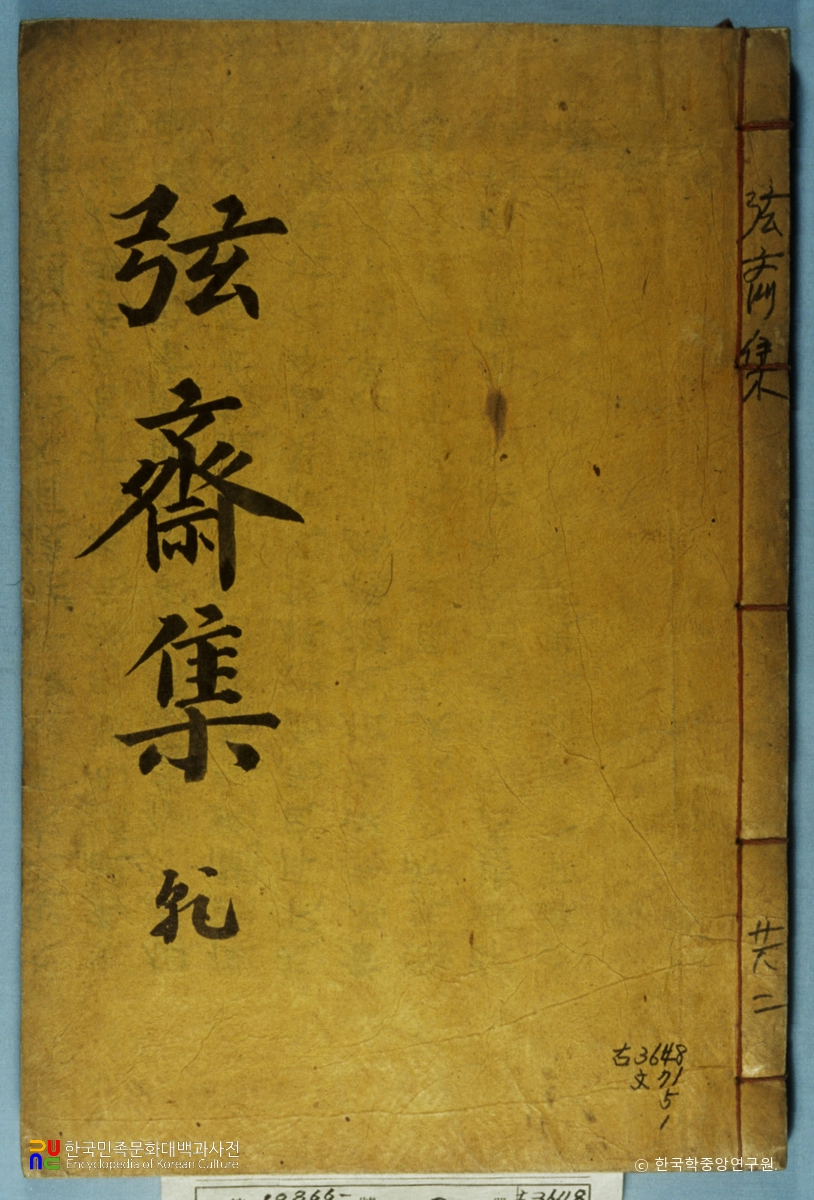 弦齋集 乾
弦齋集
共二
古3648
文71
5
1
한국민족문화대백과사전
Encyclopedia of Korean Culture
© 한국학중앙연구원